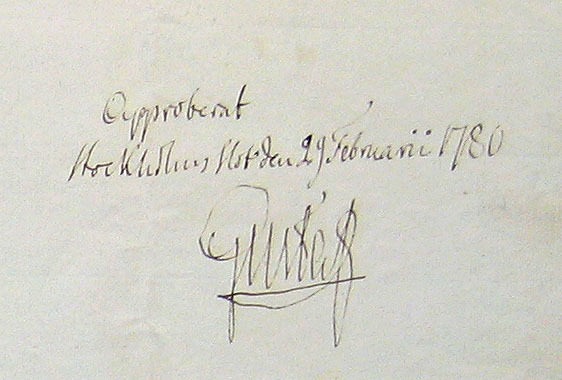 Approberat
Stockholms Slot den 29 Februarii 1780
Gustaf